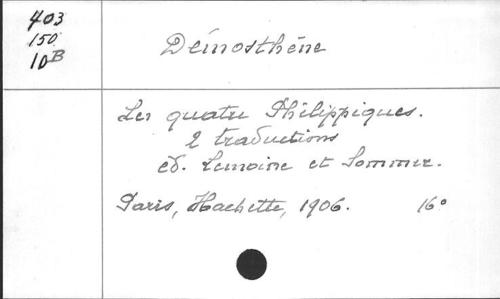 403
150
10B
Démosthène
Les quatre Philippiques.
2 traductions
éd. Lemoine et Sommer.
Paris, Hachette, 1906. 16°